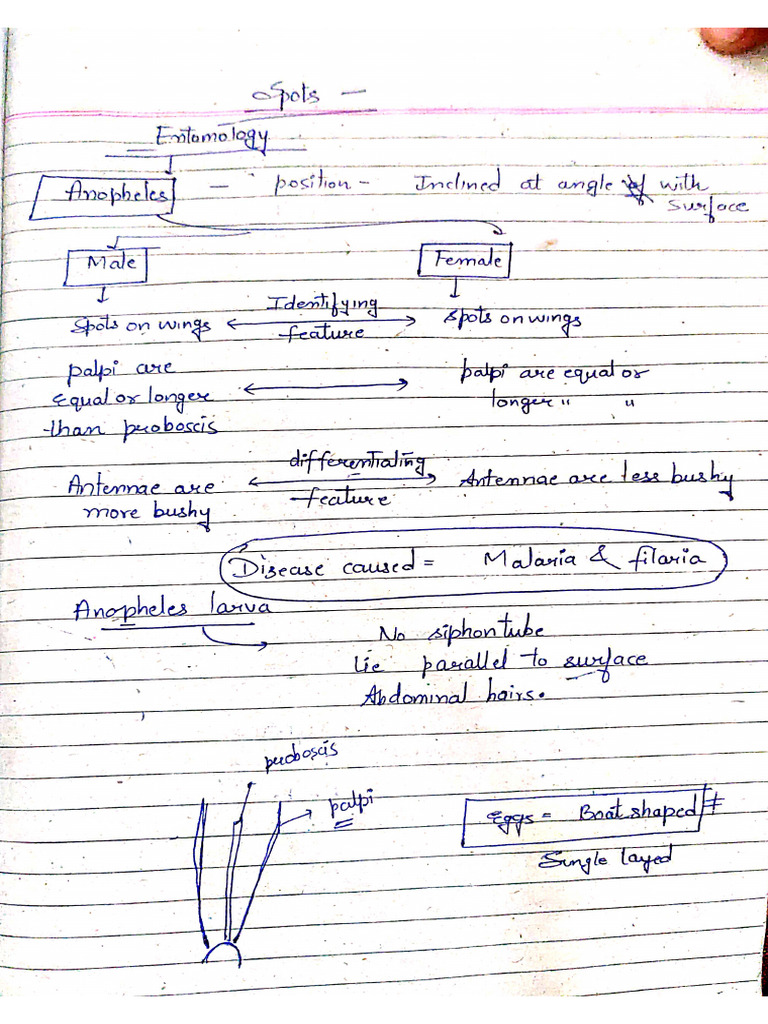 Spots -
Entomology
Anopheles - position - Inclined at angle with
surface
Male Female
Identifying
Spots on wings spots on wings
feature
palpi are palpi are equal or
Equal or longer longer " "
than proboscis
differentialing
Antennae are Antennae are less bushy
more bushy feature
Disease caused = Malaria & filaria
Anopheles larva
No siphon tube
Lie parallel to surface
Abdominal hairs.
proboscis
palpi
eggs = Boat shaped #
Single layed